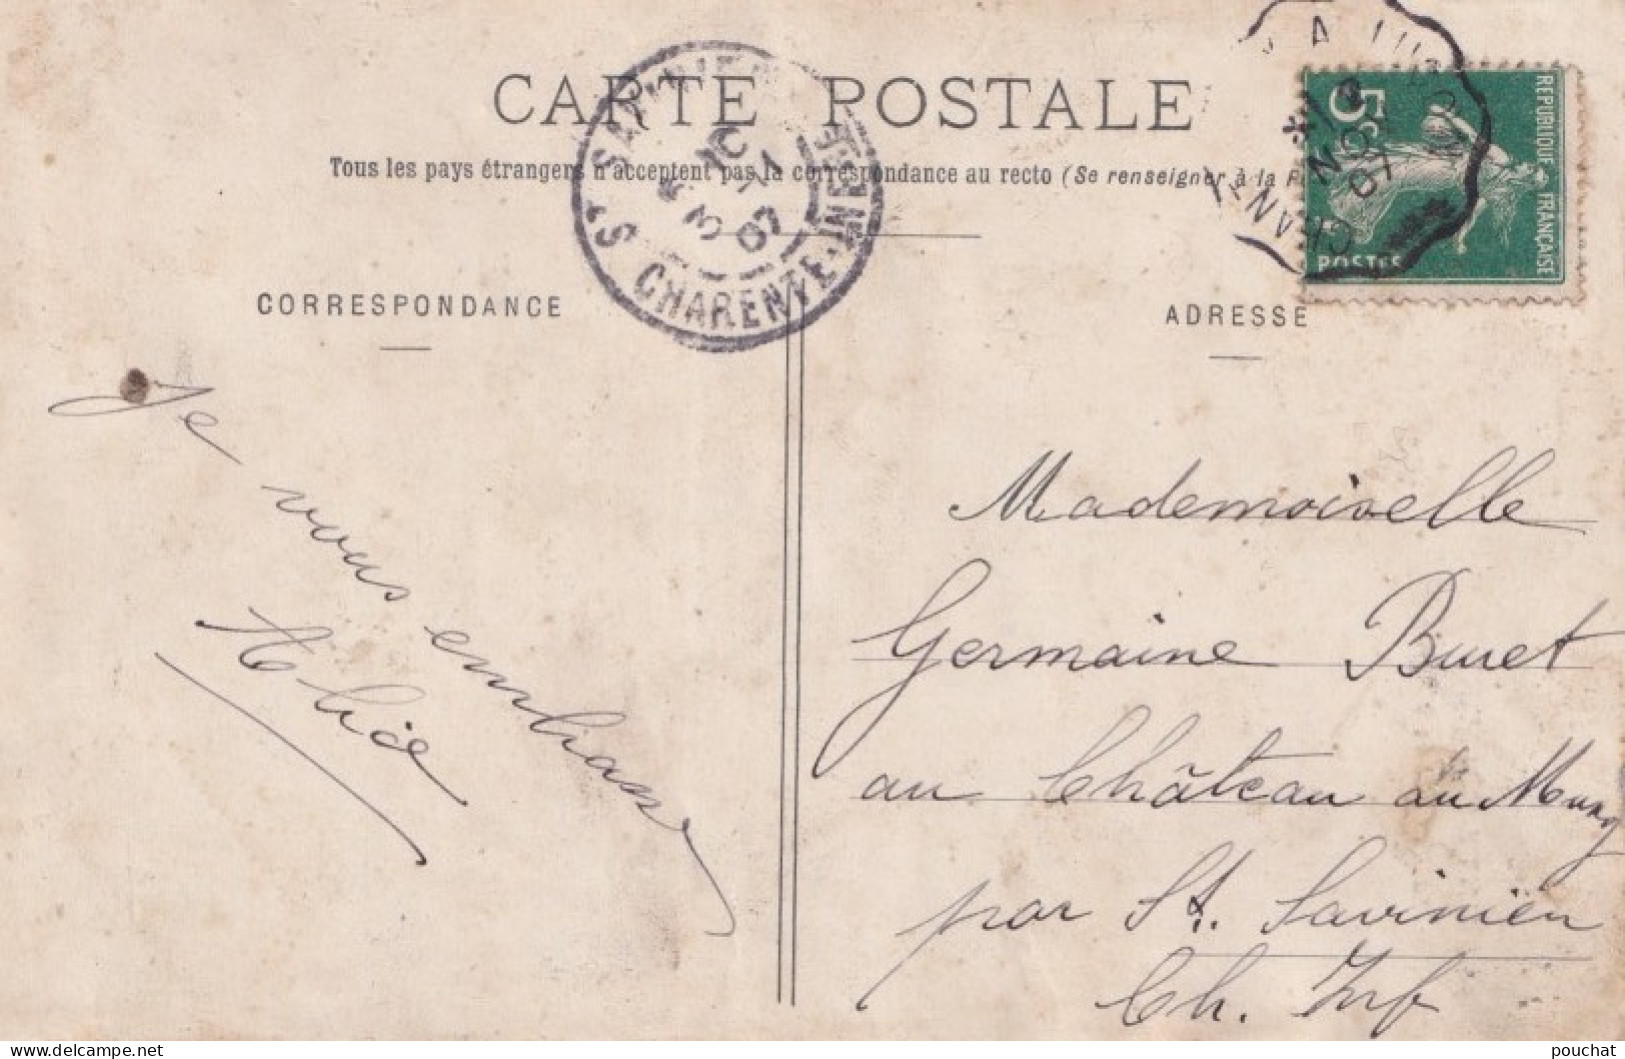 CARTE POSTALE
Tous les pays étrangers n'acceptent pas la correspondance au recto (Se renseigner à la
CORRESPONDANCE
ADRESSE
ST SAVINIEN
10
3-11
07
CHARENTE-INFRE
NOV
07
5c
REPUBLIQUE FRANÇAISE
POSTES
Je vous embrasse
Alice
Mademoiselle
Germaine Buret
au Château du Mung
par St. Savinien
Ch. Inf
www.delcampe.net
pouchat